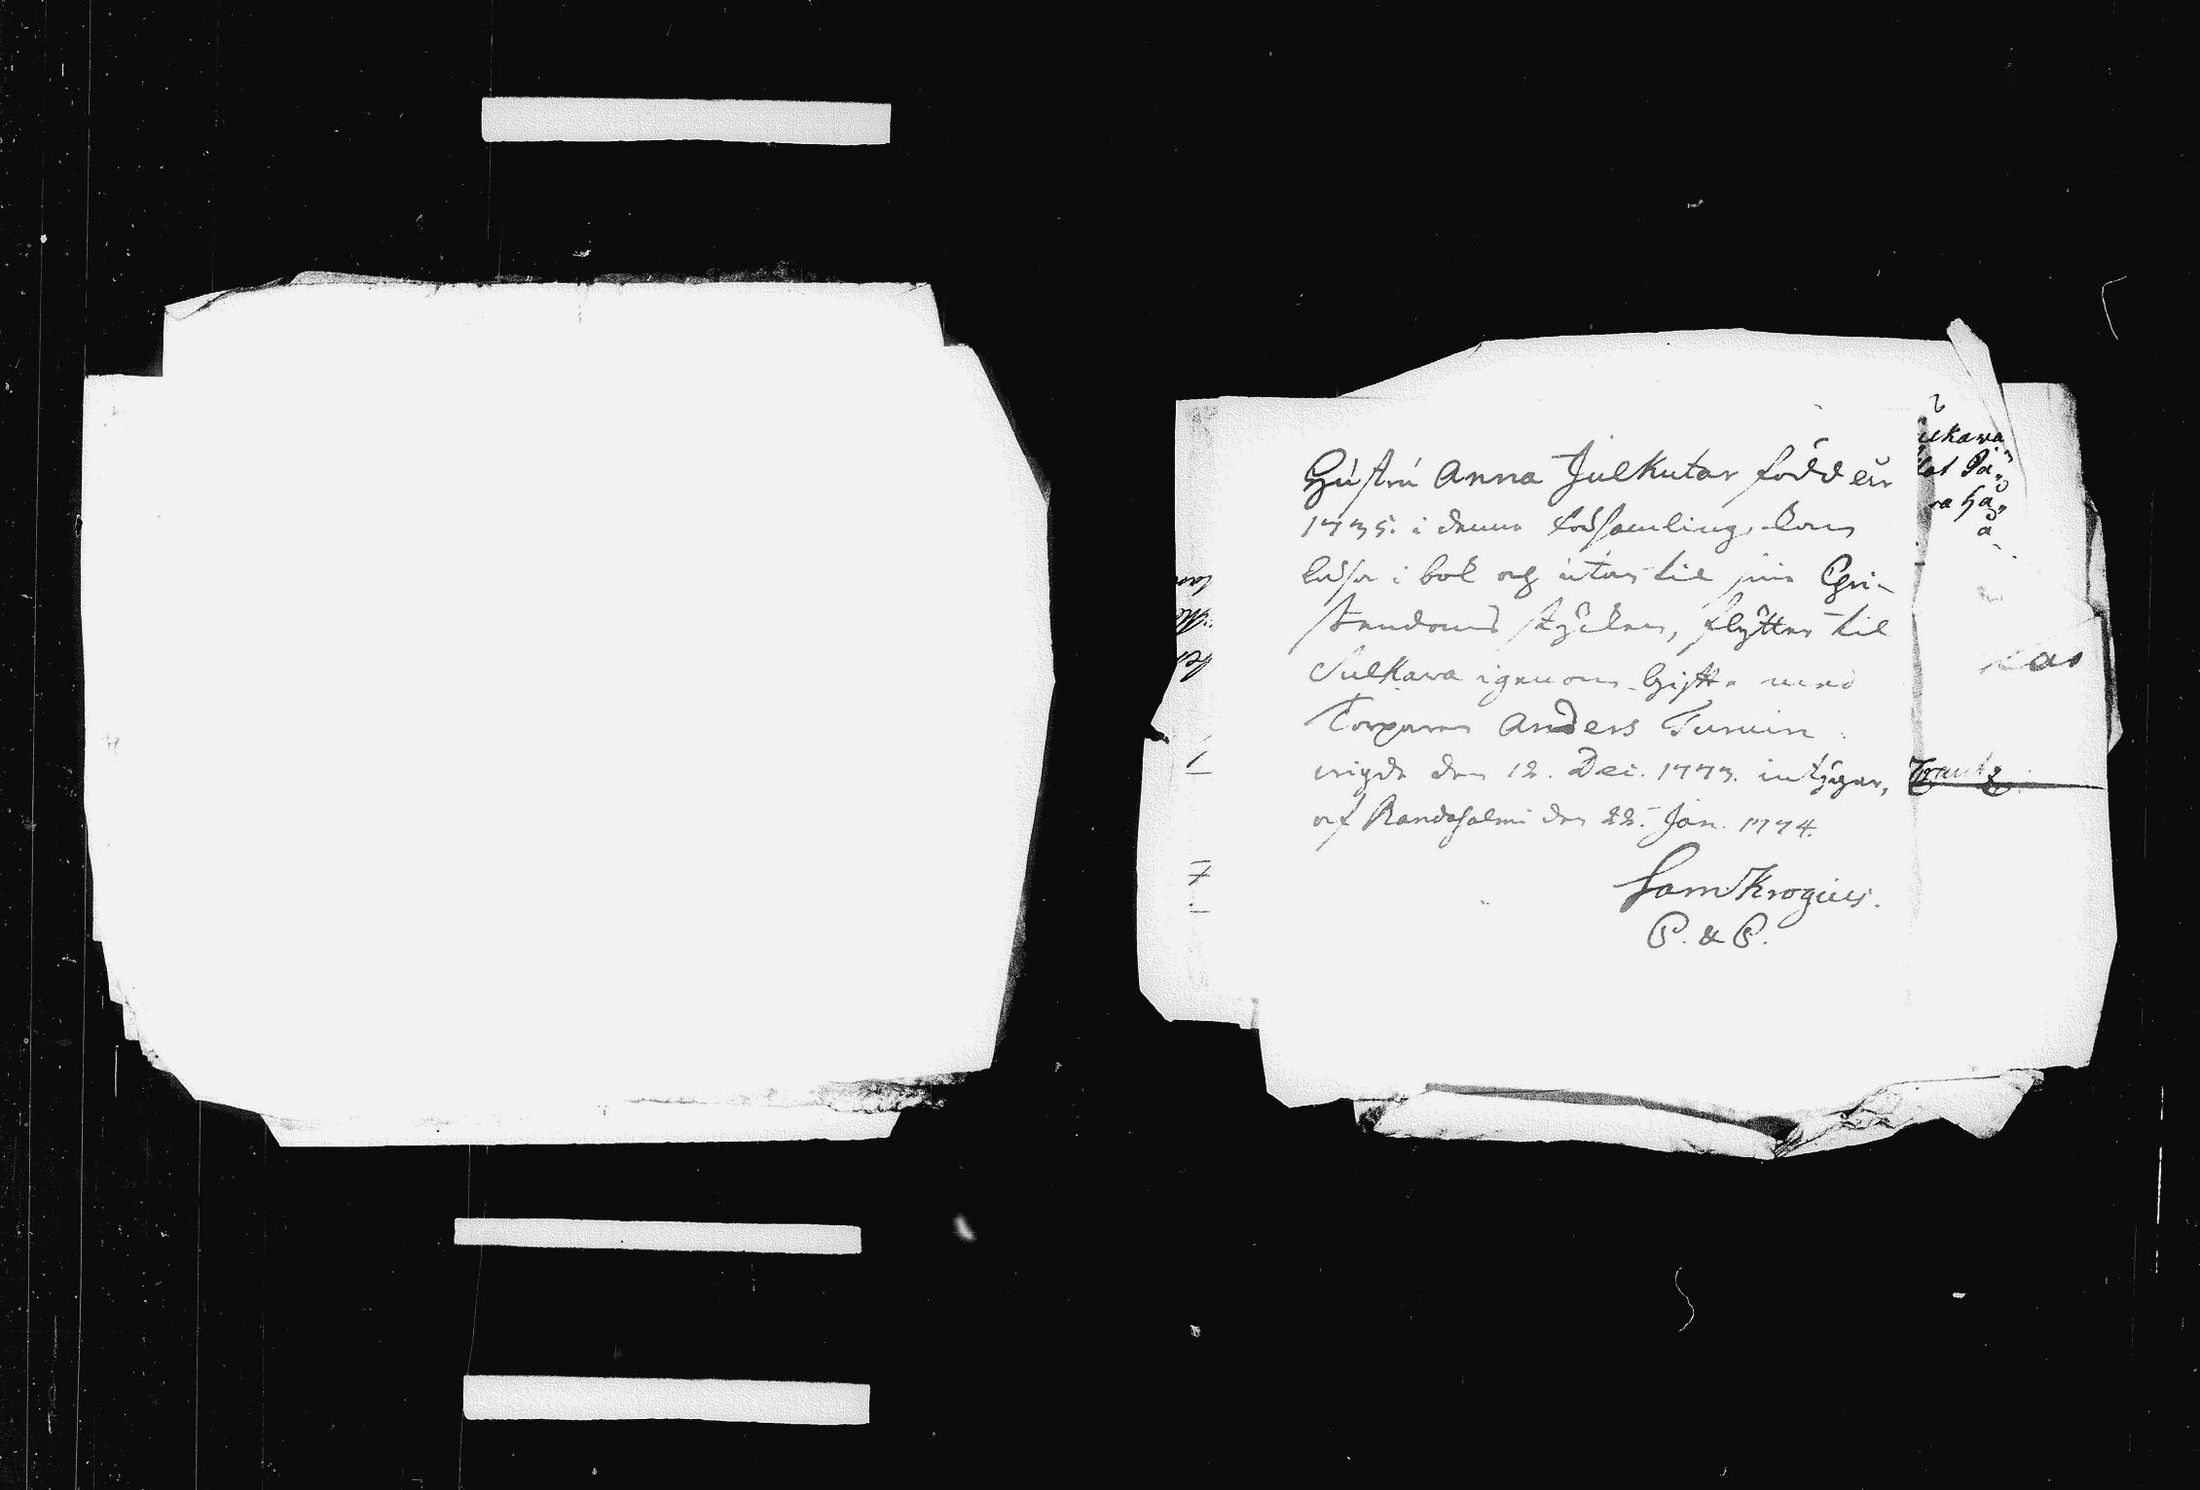 Hústrú Anna Julkutar född år
1735. i denna församling, kan
läsa i bok och utan til sin Chri-
stendoms stÿcken, flÿttar til
Sulkava igenom Gifte med
Torparen Anders Turuin
wigde den 12. Dec. 1773. intÿgar,
af Randasalmi den 22. Jan. 1774.
Sam Krogius.
P. & P.
ulkawa
ra